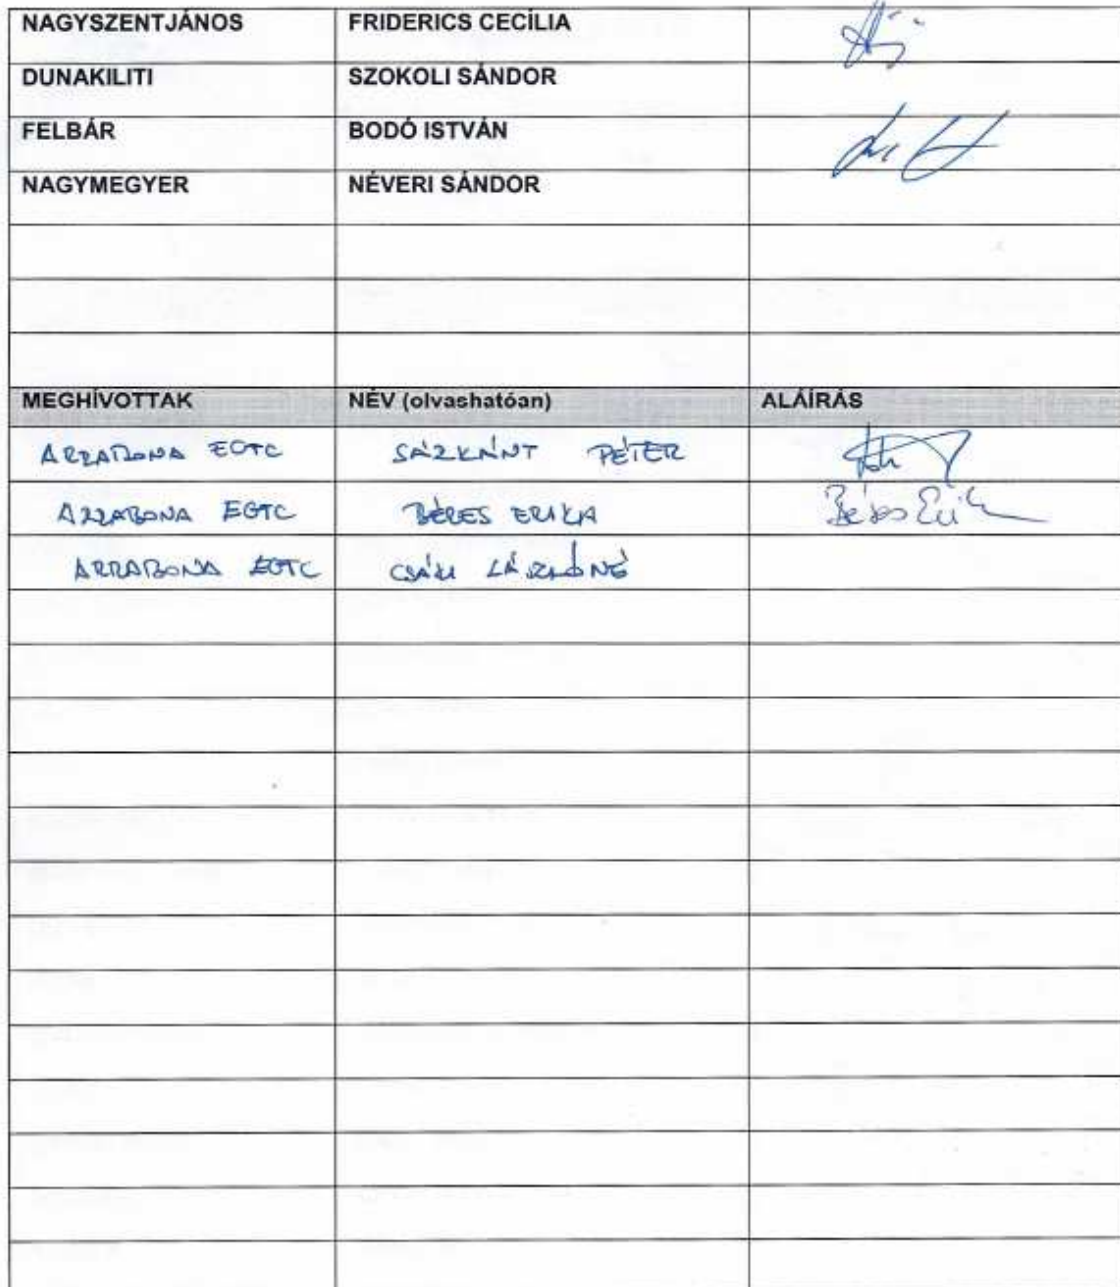 NAGYSZENTJÁNOS FRIDERICS CECÍLIA
DUNAKILITI SZOKOLI SÁNDOR
FELBÁR BODÓ ISTVÁN
NAGYMEGYER NÉVERI SÁNDOR
MEGHÍVOTTAK NÉV (olvashatóan) ALÁÍRÁS
ARRABONA EGTC SÁRKÁNY PÉTER
ARRABONA EGTC BÉRES ERIKA Béres Erika
ARRABONA EGTC CSÁKI LÁSZLÓNÉ